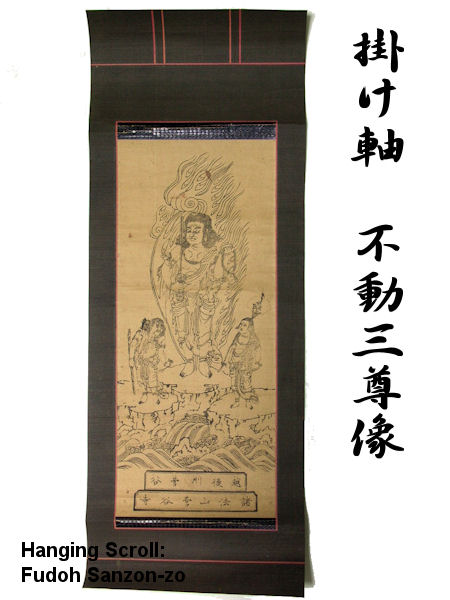 掛け軸　不動三尊像
越後州菅谷
諸法山菅谷寺
Hanging Scroll:
Fudoh Sanzon-zo